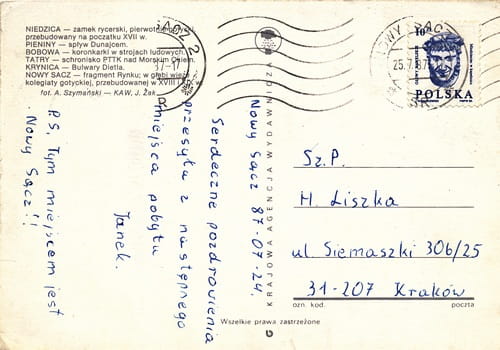 NIEDZICA — zamek rycerski, pierwotnie
przebudowany na początku XVII w.
PIENINY — spływ Dunajcem.
BOBOWA — koronkarki w strojach ludowych.
TATRY — schronisko PTTK nad Morskim Okiem.
KRYNICA — Bulwary Dietla.
NOWY SĄCZ — fragment Rynku; w głębi wieże
kolegiaty gotyckiej, przebudowanej w XVIII
fot. A. Szymański — KAW, J. Żak
Nowy Sącz 87-07-24.
Serdeczne pozdrowienia
przesyła z następnego
miejsca pobytu
Janek.
P.S. Tym miejscem jest
Nowy Sącz!!
KRAJOWA AGENCJA WYDAWNICZA
NOWY SĄCZ
25.7.87
10
POLSKA
Sz.P.
H. Liszka
ul. Siemaszki 30b/25
31-207 Kraków
ozn. kod.
poczta
Wszelkie prawa zastrzeżone